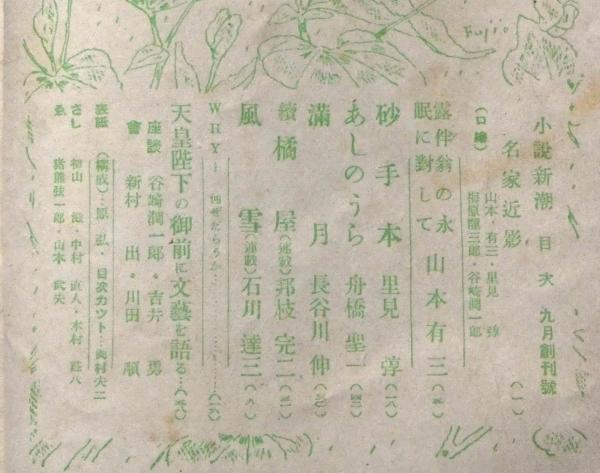 Fujio
小説新潮 目次 九月創刊號
名家近影（一）
（口繪）山本有三・里見弴
梅原龍三郎・谷崎潤一郎
露伴翁の永
眠に對して 山本有三
砂手本 里見弴（一八）
あしのうら 舟橋聖一
滿月 長谷川伸
續橘屋（連載）邦枝完二
風雪（連載）石川達三（八）
WHY！
天皇陛下の御前に文藝を語る
座談會 谷崎潤一郎・吉井勇
新村出・川田順
表紙（構成）…原弘・目次カット…
さしゑ
中村直人・木村莊八
猪熊弦一郎・山本武夫